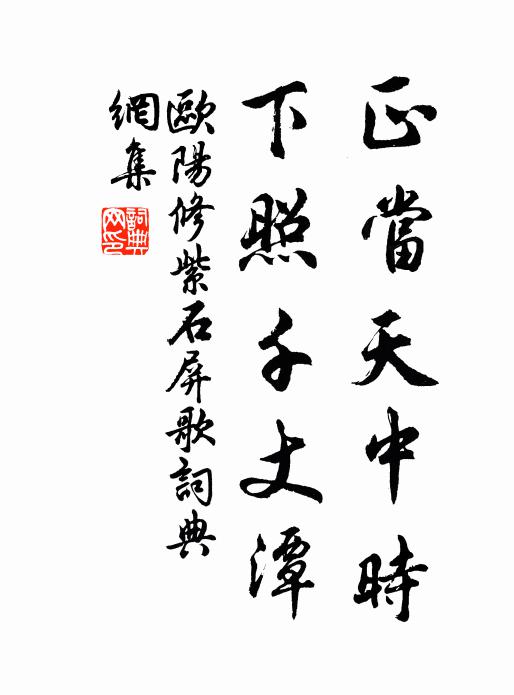 正當天中時
下照千丈潭
歐陽修紫石屏歌詞典
網集
詞典
网印